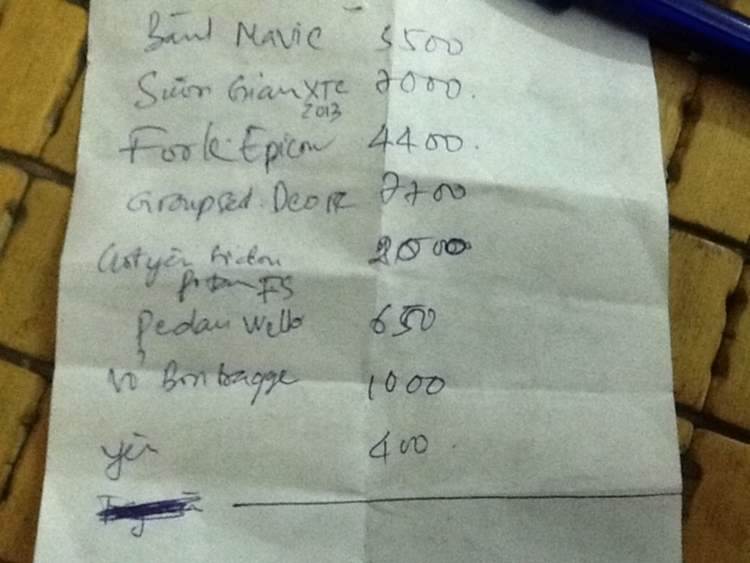 Bánh Mavic 5500
Sườn Giant XTC 7000.
2013
Fork Epicon 4400.
Groupset Deore 7700
Cốt yên Pidon 2500
FS
Pedan Wellgo 650
Vỏ Bontragge 1000
yên 400